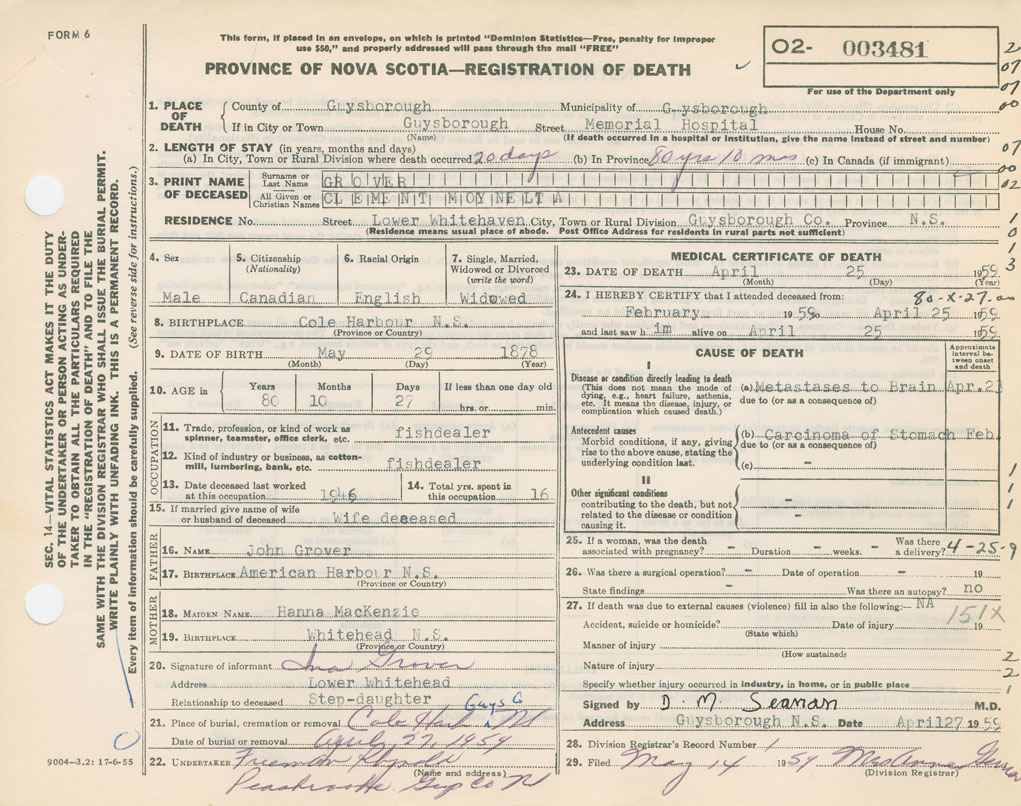 FORM 6
This form, if placed in an envelope, on which is printed "Dominion Statistics—Free, penalty for improper
use $50," and properly addressed will pass through the mail "FREE"
PROVINCE OF NOVA SCOTIA—REGISTRATION OF DEATH
02- 003481
For use of the Department only
SEC. 14—VITAL STATISTICS ACT MAKES IT THE DUTY
OF THE UNDERTAKER OR PERSON ACTING AS UNDER-
TAKER TO OBTAIN ALL THE PARTICULARS REQUIRED
IN THE "REGISTRATION OF DEATH" AND TO FILE THE
SAME WITH THE DIVISION REGISTRAR WHO SHALL ISSUE THE BURIAL PERMIT.
WRITE PLAINLY WITH UNFADING INK. THIS IS A PERMANENT RECORD.
Every item of information should be carefully supplied. (See reverse side for instructions.)
1. PLACE OF DEATH
County of Guysborough Municipality of Guysborough
If in City or Town Guysborough Street Memorial Hospital House No.
(Name) (If death occurred in a hospital or institution, give the name instead of street and number)
2. LENGTH OF STAY (in years, months and days)
(a) In City, Town or Rural Division where death occurred 20 days (b) In Province 80 yrs 10 mos (c) In Canada (if immigrant)
3. PRINT NAME OF DECEASED
Surname or Last Name GROVER
All Given or Christian Names CLEMENT MOYNELTA
RESIDENCE No. Street Lower Whitehaven City, Town or Rural Division Guysborough Co. Province N.S.
(Residence means usual place of abode. Post Office Address for residents in rural parts not sufficient)
4. Sex
Male
5. Citizenship (Nationality)
Canadian
6. Racial Origin
English
7. Single, Married, Widowed or Divorced (write the word)
Widowed
8. BIRTHPLACE Cole Harbour N.S.
(Province or Country)
9. DATE OF BIRTH May 29 1878
(Month) (Day) (Year)
10. AGE in Years Months Days If less than one day old
80 10 27 hrs. or min.
OCCUPATION
11. Trade, profession, or kind of work as spinner, teamster, office clerk, etc. fishdealer
12. Kind of industry or business, as cotton-mill, lumbering, bank, etc. fishdealer
13. Date deceased last worked at this occupation 1946
14. Total yrs. spent in this occupation 16
15. If married give name of wife or husband of deceased Wife deceased
FATHER
16. NAME John Grover
17. BIRTHPLACE American Harbour N.S.
(Province or Country)
MOTHER
18. MAIDEN NAME Hanna MacKenzie
19. BIRTHPLACE Whitehead N.S.
(Province or Country)
20. Signature of informant Ina Grover
Address Lower Whitehead
Relationship to deceased Step-daughter
21. Place of burial, cremation or removal Cole Harb Guys Co NS
Date of burial or removal April 27, 1959
22. UNDERTAKER
(Name and address)
9004—3.2: 17-6-55
MEDICAL CERTIFICATE OF DEATH
23. DATE OF DEATH April 25 1959
(Month) (Day) (Year)
24. I HEREBY CERTIFY that I attended deceased from: 80-X-27.00
February 1959 to April 25 1959
and last saw him alive on April 25 1959
CAUSE OF DEATH
Approximate interval between onset and death
I
Disease or condition directly leading to death
(This does not mean the mode of dying, e.g., heart failure, asthenia, etc. It means the disease, injury, or complication which caused death.)
(a) Metastases to Brain Apr.23
due to (or as a consequence of)
Antecedent causes
Morbid conditions, if any, giving rise to the above cause, stating the underlying condition last.
(b) Carcinoma of Stomach Feb.
due to (or as a consequence of)
(c) -
II
Other significant conditions
contributing to the death, but not related to the disease or condition causing it.
-
-
25. If a woman, was the death associated with pregnancy? - Duration - weeks. - Was there a delivery? 4-25-9
26. Was there a surgical operation? - Date of operation - 19
State findings - Was there an autopsy? no
27. If death was due to external causes (violence) fill in also the following:— NA
151X
Accident, suicide or homicide? Date of injury 19
(State which)
Manner of injury
(How sustained)
Nature of injury
Specify whether injury occurred in industry, in home, or in public place
Signed by D. M. Seaman M.D.
Address Guysborough N.S. Date April 27 1959
28. Division Registrar's Record Number 1
29. Filed May 14 1959 Mrs
(Division Registrar)